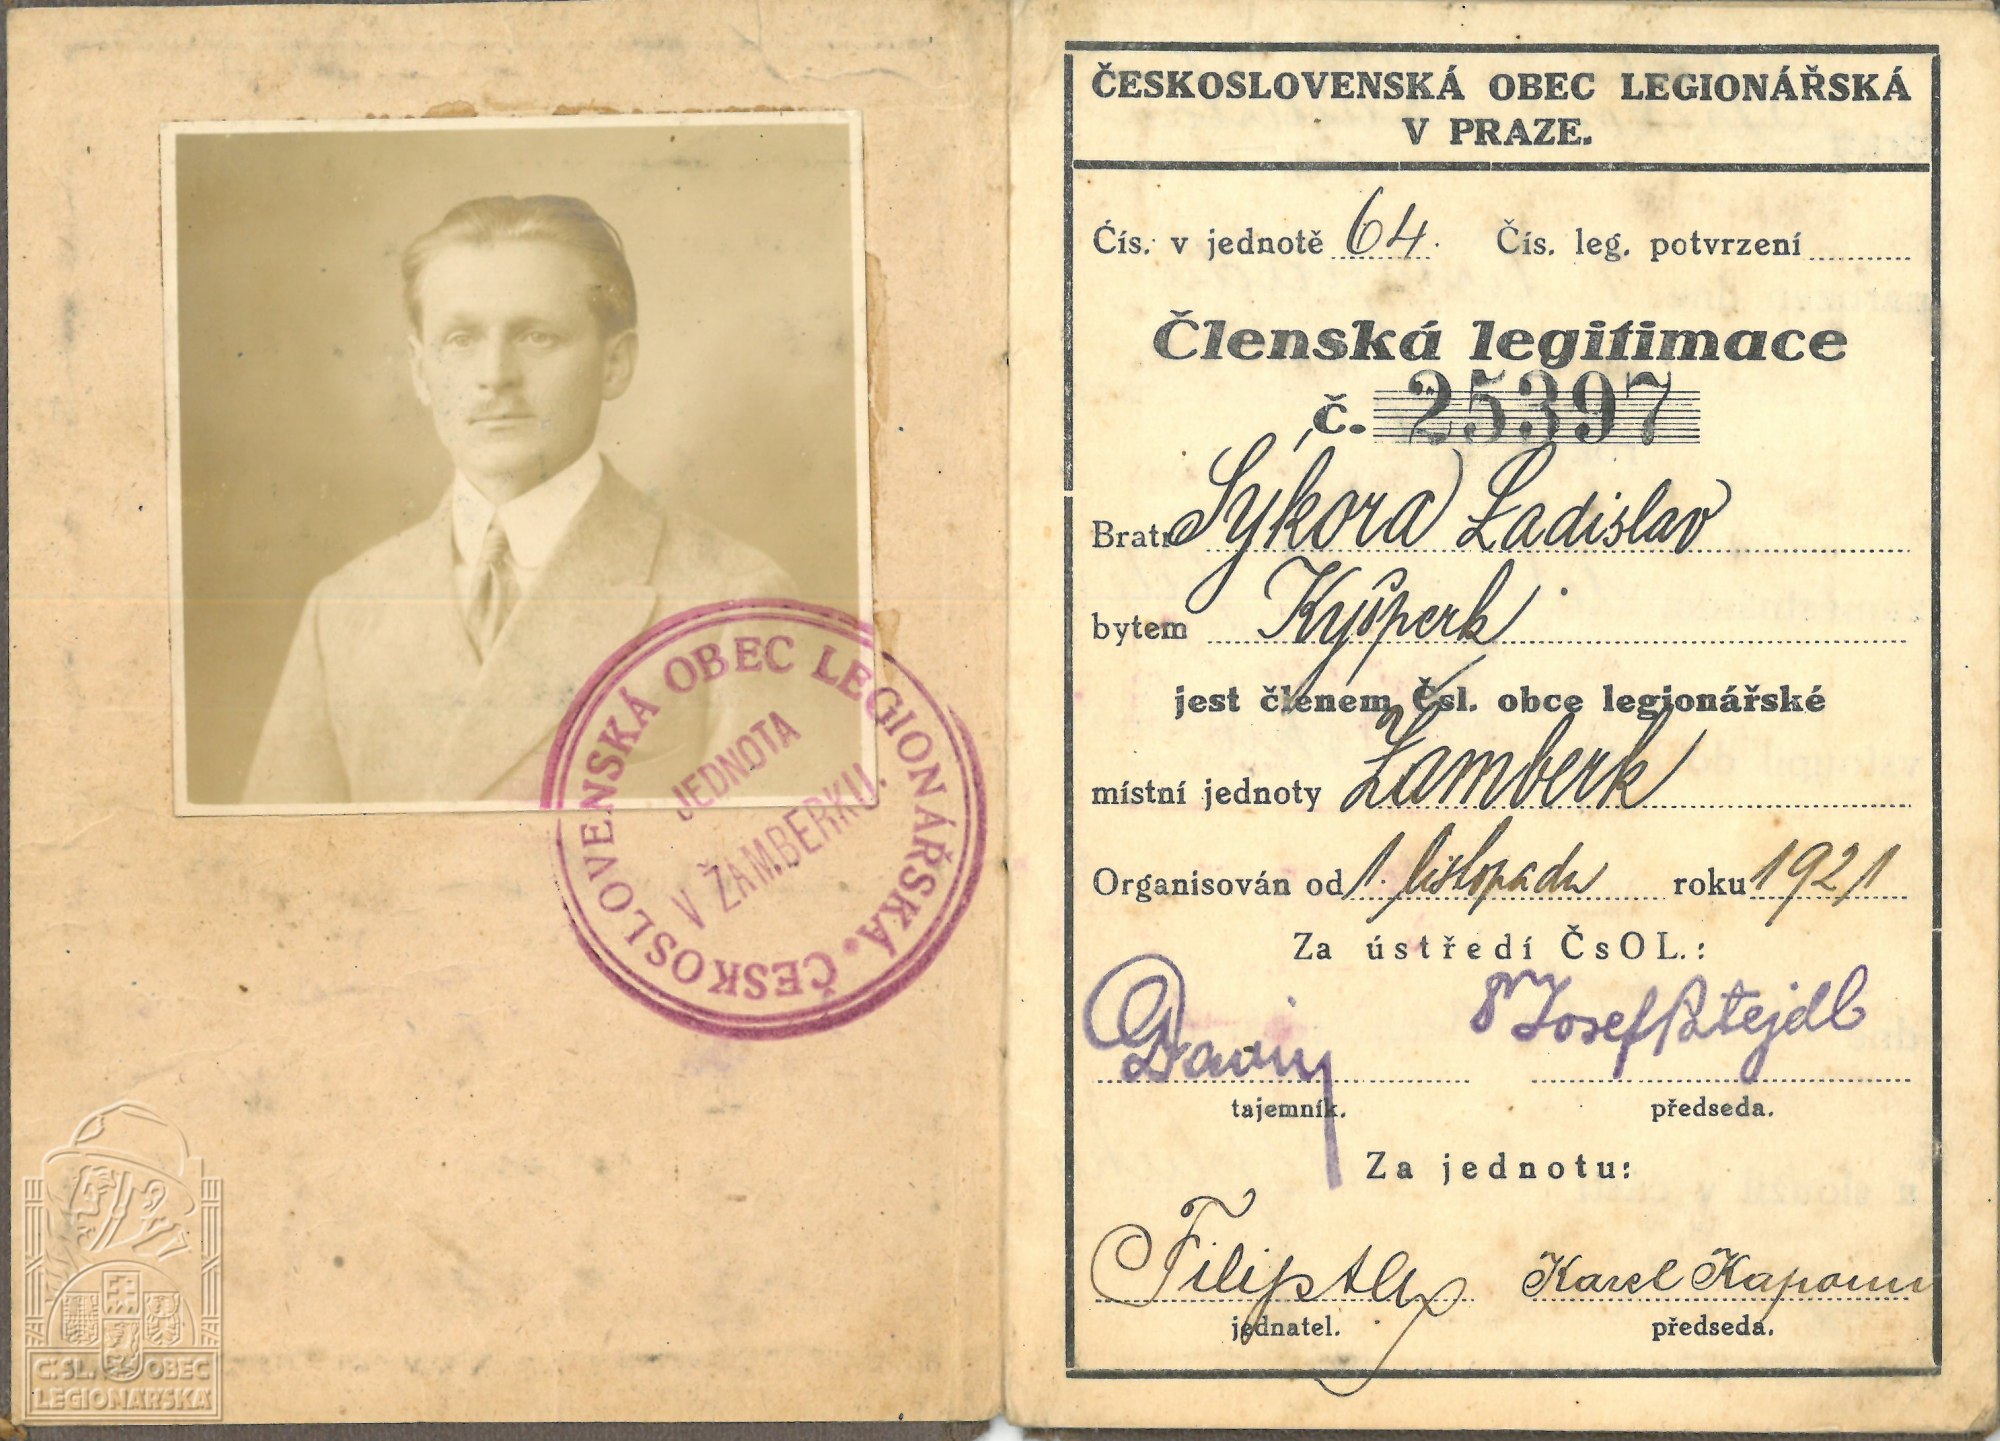 ČESKOSLOVENSKÁ OBEC LEGIONÁŘSKÁ.
JEDNOTA
V ŽAMBERKU.
Č. SL. OBEC
LEGIONÁŘSKÁ
ČESKOSLOVENSKÁ OBEC LEGIONÁŘSKÁ
V PRAZE.
Čís. v jednotě 64. Čís. leg. potvrzení
Členská legitimace
č. 25397
Bratr Sýkora Ladislav
bytem Kyšperk
jest členem Čsl. obce legionářské
místní jednoty Žamberk
Organisován od 1. listopadu roku 1921
Za ústředí ČsOL.:
Josef Patejdl
tajemník. předseda.
Za jednotu:
Karel
jednatel. předseda.